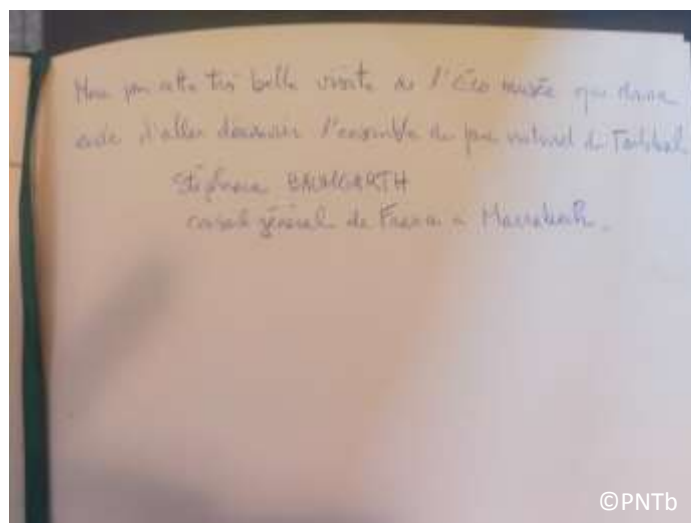 Merci pour cette très belle visite de l'éco musée qui donne
envie d'aller découvrir l'ensemble du parc naturel de Toubkal
Stéphane BAUMGARTH
consul général de France à Marrakech.
©PNTb